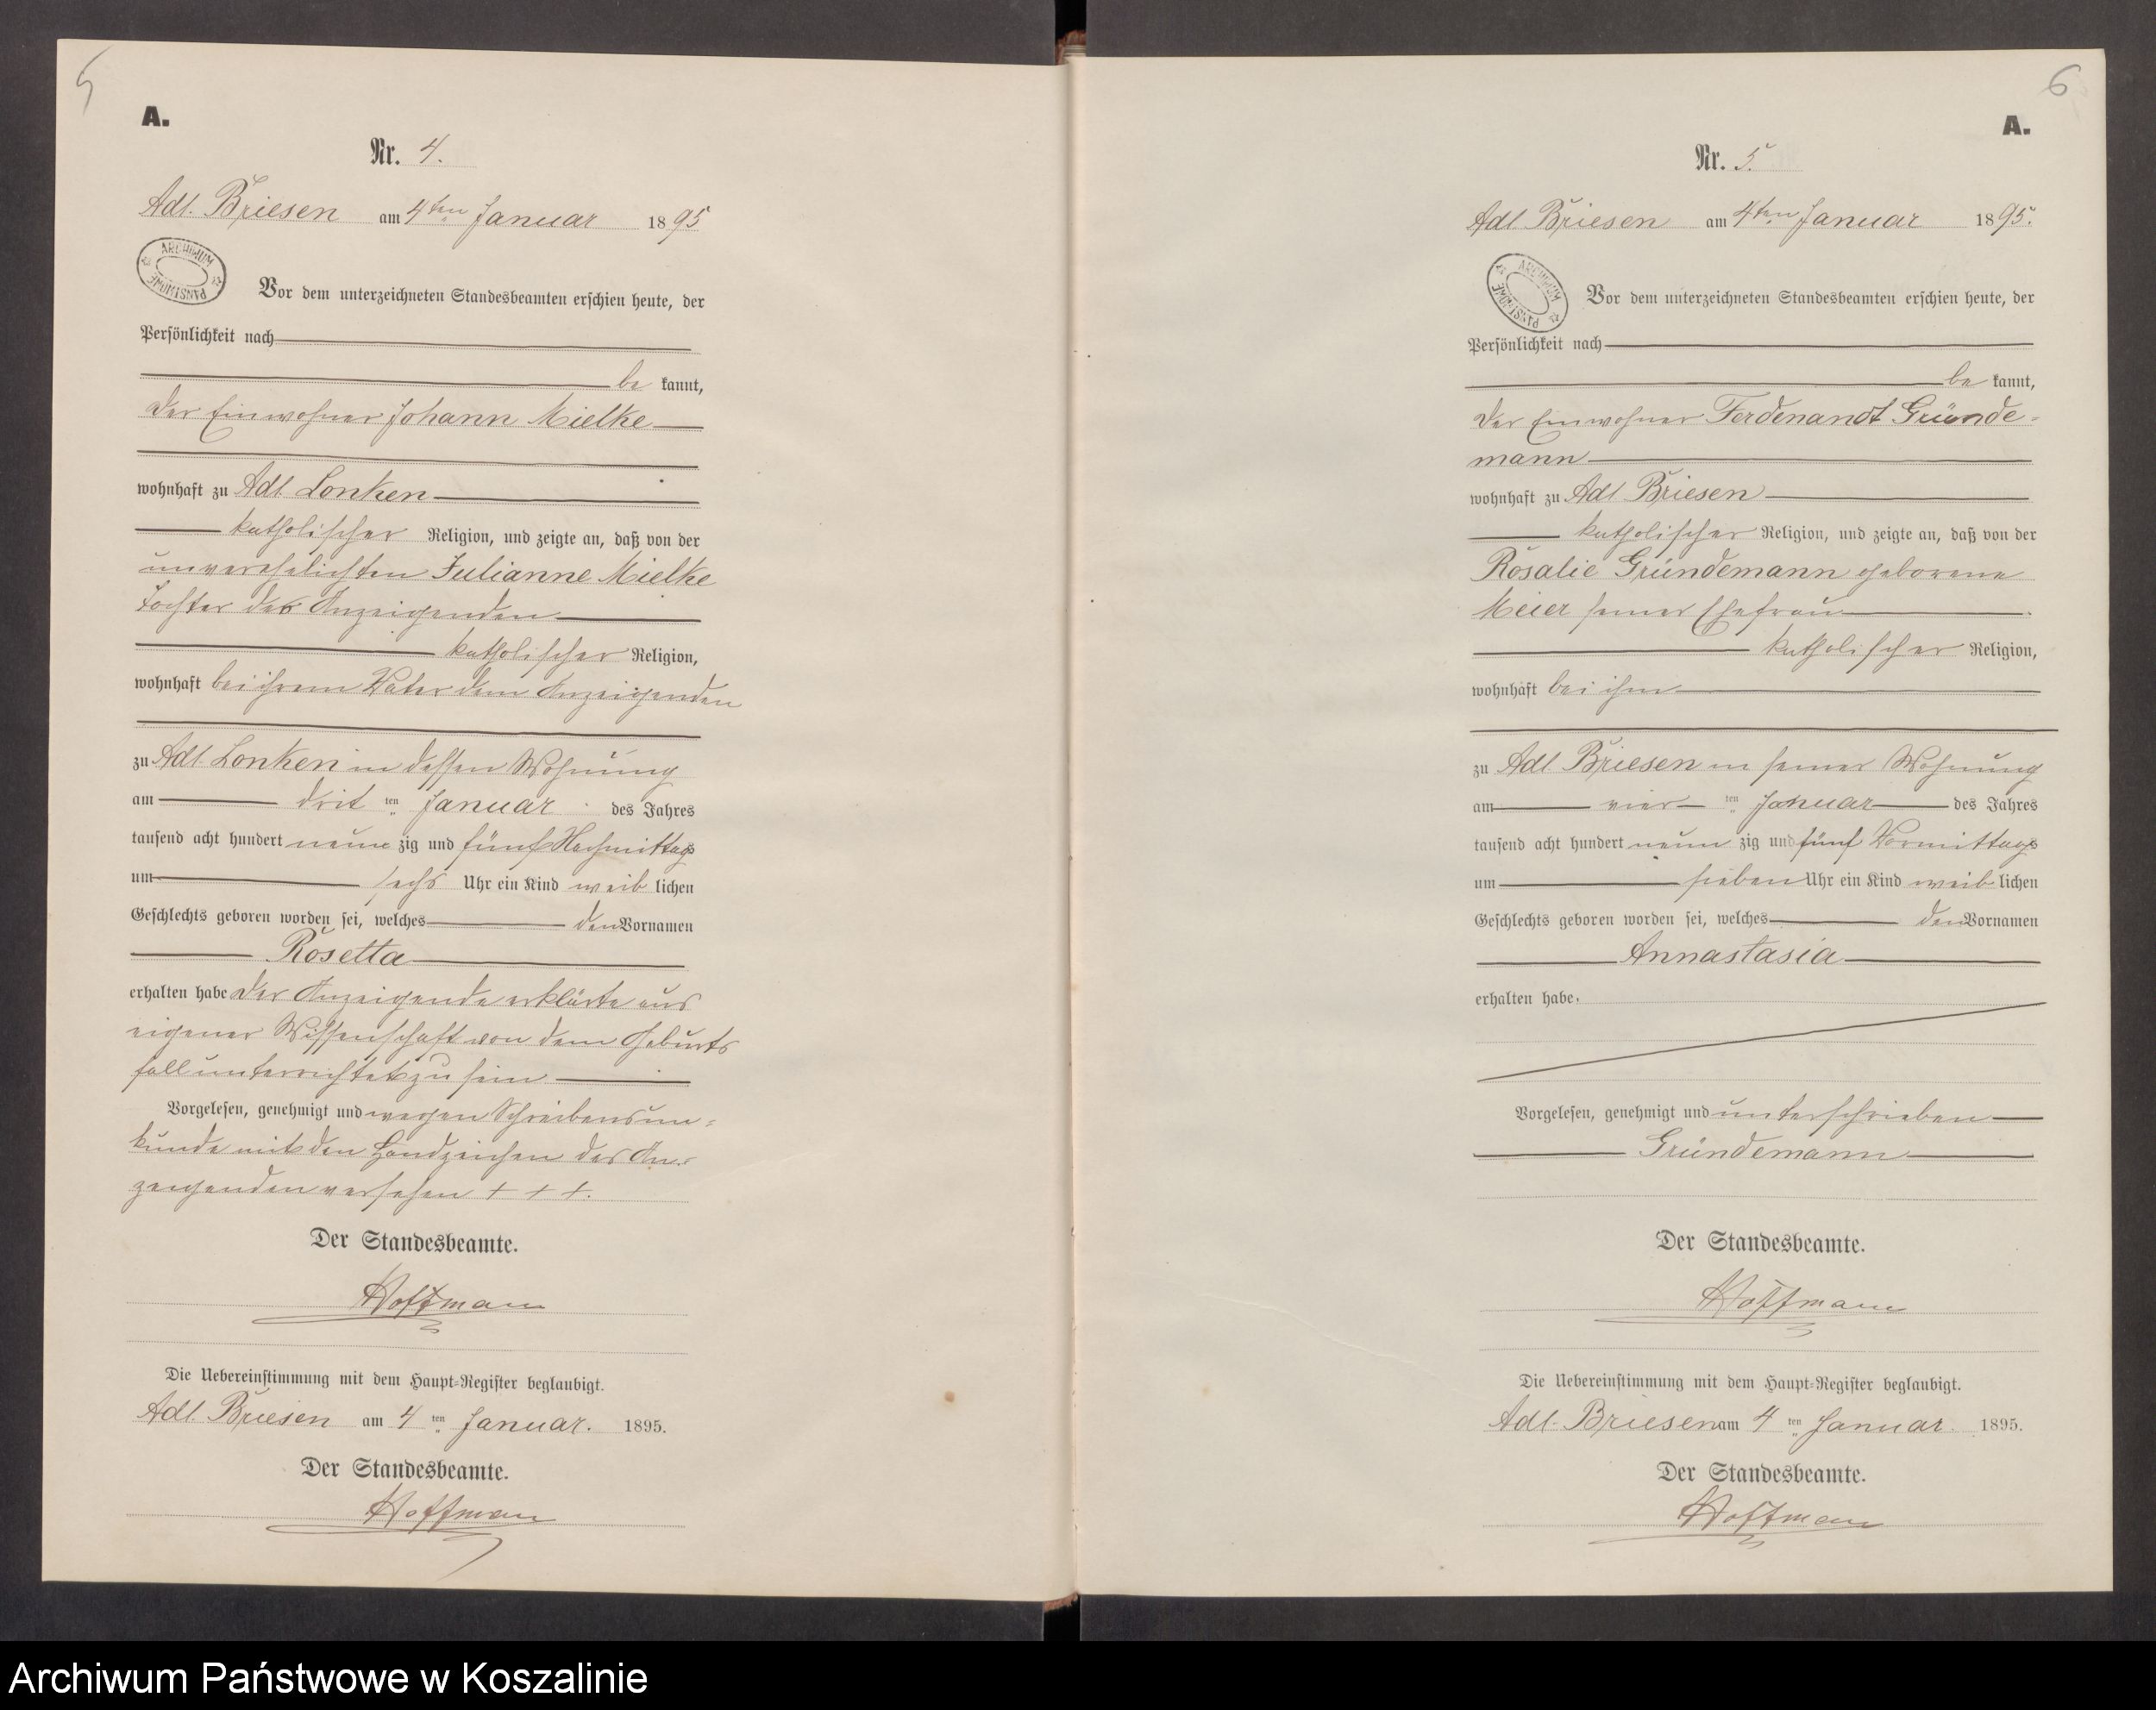 5
A.
Nr. 4.
Adl. Briesen am 4ten Januar 1895
ARCHIWUM PAŃSTWOWE
Vor dem unterzeichneten Standesbeamten erschien heute, der
Persönlichkeit nach
be kannt,
der Einwohner Johann Mielke
wohnhaft zu Adl. Lonken
katholischer Religion, und zeigte an, daß von der
unverehelichten Julianne Mielke
Tochter des Anzeigenden
katholischer Religion,
wohnhaft bei ihrem Vater dem Anzeigenden
zu Adl. Lonken in dessen Wohnung
am drit ten Januar des Jahres
tausend acht hundert neun zig und fünf Nachmittags
um sechs Uhr ein Kind weib lichen
Geschlechts geboren worden sei, welches den Vornamen
Rosetta
erhalten habe der Anzeigende erklärte aus
eigener Wissenschaft von dem Geburts
fall unterrichtet zu sein
Vorgelesen, genehmigt und wegen Schreibensun-
kunde mit den Handzeichen des An-
zeigenden versehen + + +.
Der Standesbeamte.
Hoffmann
Die Uebereinstimmung mit dem Haupt-Register beglaubigt.
Adl. Briesen am 4 ten Januar. 1895.
Der Standesbeamte.
Hoffmann
6
A.
Nr. 5.
Adl. Briesen am 4ten Januar 1895.
ARCHIWUM PAŃSTWOWE
Vor dem unterzeichneten Standesbeamten erschien heute, der
Persönlichkeit nach
be kannt,
der Einwohner Ferdenandt Gründe-
mann
wohnhaft zu Adl. Briesen
katholischer Religion, und zeigte an, daß von der
Rosalie Gründemann geborene
Meier seiner Ehefrau
katholischer Religion,
wohnhaft bei ihm
zu Adl. Briesen in seiner Wohnung
am vier ten Januar des Jahres
tausend acht hundert neun zig und fünf Vormittags
um sieben Uhr ein Kind weib lichen
Geschlechts geboren worden sei, welches den Vornamen
Annastasia
erhalten habe.
Vorgelesen, genehmigt und unterschrieben
Gründemann
Der Standesbeamte.
Hoffmann
Die Uebereinstimmung mit dem Haupt-Register beglaubigt.
Adl. Briesen am 4 ten Januar. 1895.
Der Standesbeamte.
Hoffmann
Archiwum Państwowe w Koszalinie